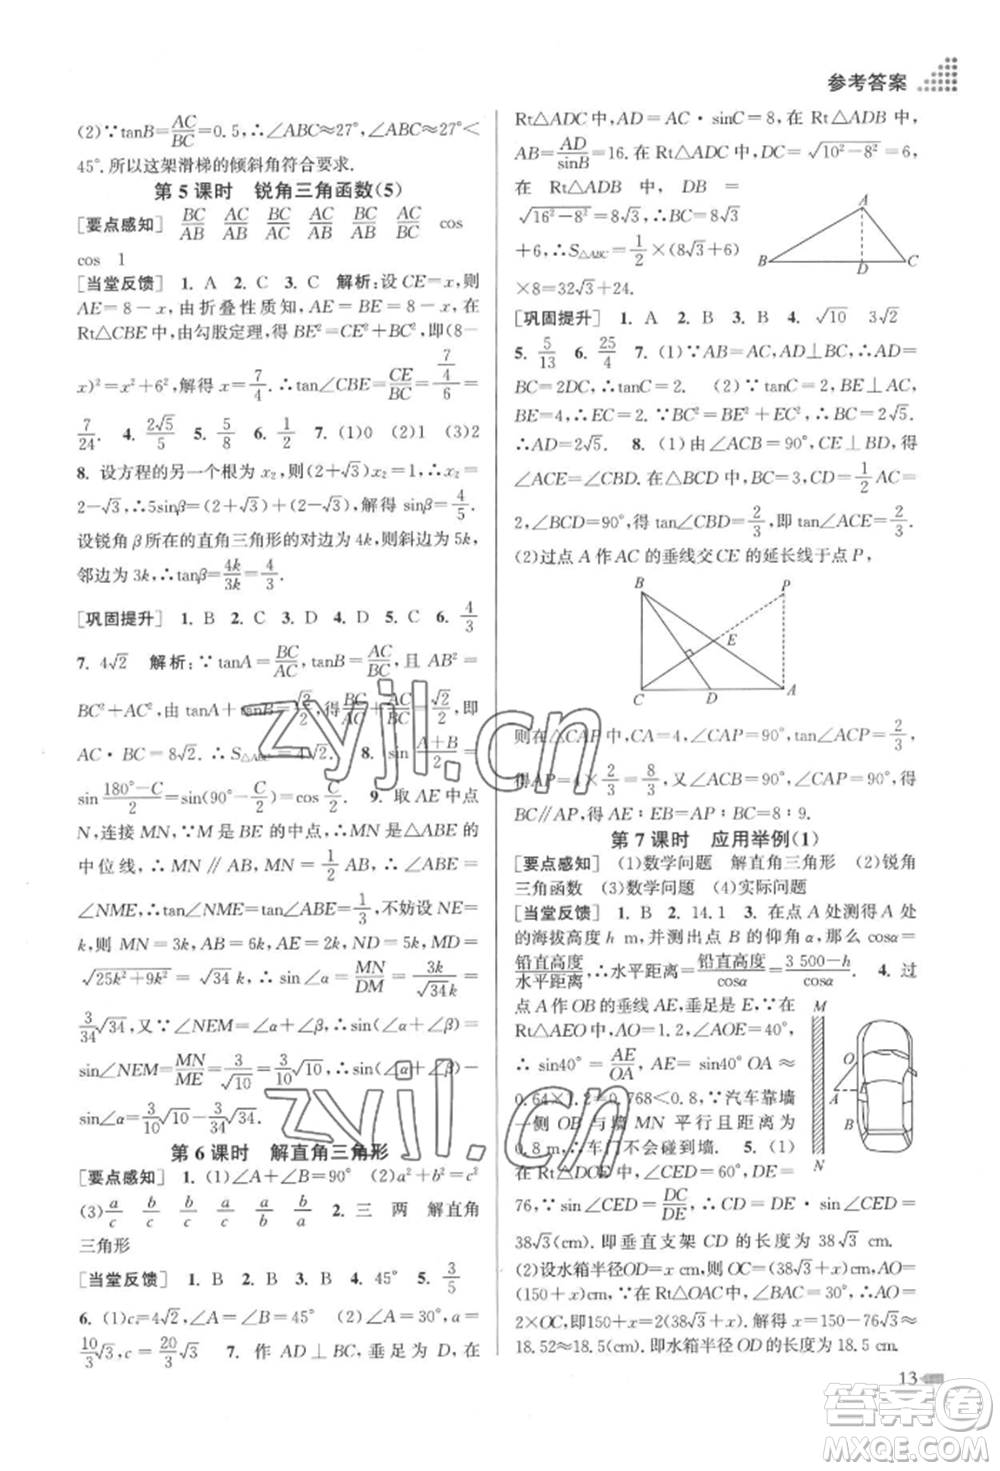 参考答案
(2)∵tanB=AC/BC=0.5,∴∠ABC≈27°,∵27°<
45°.所以这架滑梯的倾斜角符合要求.
第 5 课时 锐角三角函数(5)
[要点感知] BC/AB AC/AB AC/AB BC/AB AC/BC BC/AC cos
cos 1
[当堂反馈] 1. A 2. C 3. C 解析:设 CE=x,则
AE=8-x,由折叠性质知,AE=BE=8-x,在
Rt△CBE 中,由勾股定理,得 BE²=CE²+BC²,即(8-
x)²=x²+6²,解得 x=7/4.∴tan∠CBE=CE/BC=(7/4)/6=
7/24. 4. 2√5/5 5. 5/8 6. 1/2 7. (1)0 (2)1 (3)2
8. 设方程的另一个根为 x₂,则(2+√3)x₂=1,∴x₂=
2-√3,∴5sinβ=(2+√3)+(2-√3),解得 sinβ=4/5.
设锐角 β 所在的直角三角形的对边为 4k,则斜边为 5k,
邻边为 3k,∴tanβ=4k/3k=4/3.
[巩固提升] 1. B 2. C 3. B 4. D 5. C 6. 4/3
7. 4√2 解析:∵tanA=BC/AC,tanB=AC/BC,AB²=
BC²+AC²,由 tanA+tanB=√2/2,得BC/AC+AC/BC=√2/2,即
AC·BC=8√2.∴S△ABC=4√2. 8. sin(A+B)/2=
sin(180°-C)/2=sin(90°-C/2)=cosC/2. 9. 取 AE 中点
N,连接 MN,∵M 是 BE 的中点,∴MN 是△ABE 的
中位线,∴MN∥AB,MN=1/2AB,∴∠BAE=
∠NME,∴tan∠NME=tan∠BAE=1/3,不妨设 NE=
k,则 MN=3k,∵∠α=∠β,∴ND=5k,MD=
√25k²+9k²=√34 k,∴sin∠β=MN/DM=3k/√34 k=
3/34√34,又∵∠NEM=∠α+∠β,∴sin(∠α+∠β)=
sin∠NEM=MN/ME=3/√10=3/10√10,∴sin(∠α+∠β)-
sin∠α=3/10√10-3/34√34.
第 6 课时 解直角三角形
[要点感知] 1. (1)∠A+∠B=90° (2)a²+b²=c²
(3)a/c b/c b/c a/c a/b b/a 2. 三 两 解直角
三角形
[当堂反馈] 1. B 2. B 3. B 4. 45° 5. 3/5
6. (1)c=4√2,∠A=∠B=45° (2)∠A=30°,a=
10/3√3,c=20/3√3 7. 作 AD⊥BC,垂足为 D,在
Rt△ADC 中,AD=AC·sinC=8,在 Rt△ABD 中,
AB=AD/sinB=16.在 Rt△ADC 中,DC=√10²-8²=6,
在 Rt△ADB 中,DB=
√16²-8²=8√3,∴BC=8√3
+6,∴S△ABC=1/2×(8√3+6)
×8=32√3+24.
A
B D C
[巩固提升] 1. A 2. B 3. B 4. √10 3√2
5. 5/13 6. 25/4 7. (1)∵AB=AC,AD⊥BC,∴AD=
BC=2DC,∴tanC=2. (2)∵BE⊥AC,tanC=2,BE=
4,∴EC=2.∵BC²=BE²+EC²,∴BC=2√5.
∴AD=2√5. 8. (1)由∠ACB=90°,CE⊥BD,得
∠ACE=∠CBD.在△BCD 中,BC=3,CD=1/2AC=
2,∠BCD=90°,得 tan∠CBD=2/3,即 tan∠ACE=2/3.
(2)过点 A 作 AC 的垂线交 CE 的延长线于点 P,
B P
E
C D A
则在△CAP 中,CA=4,∠CAP=90°,tan∠ACP=2/3,
得 AP=4×2/3=8/3,又∠ACB=90°,∠CAP=90°,得
BC∥AP,得 AE∶EB=AP∶BC=8∶9.
第 7 课时 应用举例(1)
[要点感知] (1)数学问题 解直角三角形 (2)锐角
三角函数 (3)数学问题 (4)实际问题
[当堂反馈] 1. B 2. 14.1 3. 在点 A 处测得 A 处
的海拔高度 h m,测出点 B 的仰角 α,那么 cosα=
铅直高度/水平距离,∴水平距离=铅直高度/cosα=(3 500-h)/cosα. 4. 过
点 A 作 OB 的垂线 AE,垂足是 E,∵在
Rt△AEO 中,AO=1.2,∠AOE=40°,
∴sin40°=AE/OA,∴AE=sin40°OA≈
0.64×1.2=0.768<0.8,∵汽车靠墙
一侧 OB 与墙 MN 平行且距离为
0.8 m,∴车门不会碰到墙. 5. (1)
M
O
A
B
N
在 Rt△DCE 中,∠CED=60°,DE=
76,∵sin∠CED=DC/DE,∴CD=DE·sin∠CED=
38√3(cm).即垂直支架 CD 的长度为 38√3 cm.
(2)设水箱半径OD=x cm,则 OC=(38√3+x)cm,AO=
(150+x)cm,∵Rt△OAC 中,∠BAC=30°,∴AO=
2×OC,即150+x=2(38√3+x).解得 x=150-76√3≈
18.52≈18.5(cm).即水箱半径 OD 的长度为 18.5 cm.
13
zyjl.cn
zyjl.cn
答案圈
MXQE.COM